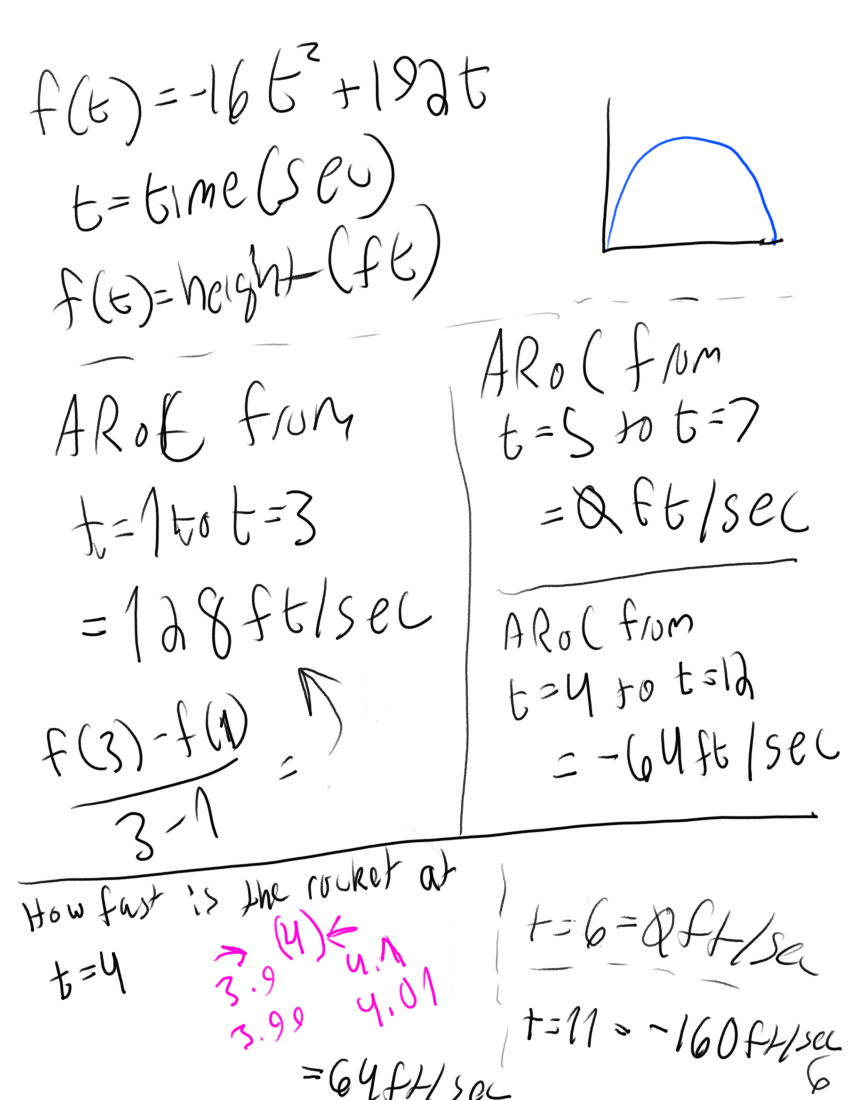 f(t)=-16t²+192t
t=time(sec)
f(t)=height(ft)
ARoC from
t=1 to t=3
=128ft/sec
f(3)-f(1)
3-1
=
ARoC from
t=5 to t=7
=0 ft/sec
ARoC from
t=4 to t=12
=-64ft/sec
How fast is the rocket at
t=4
→ (4) ←
3.9 4.1
3.99 4.01
=64ft/sec
t=6=0ft/sec
t=11=-160ft/sec
6